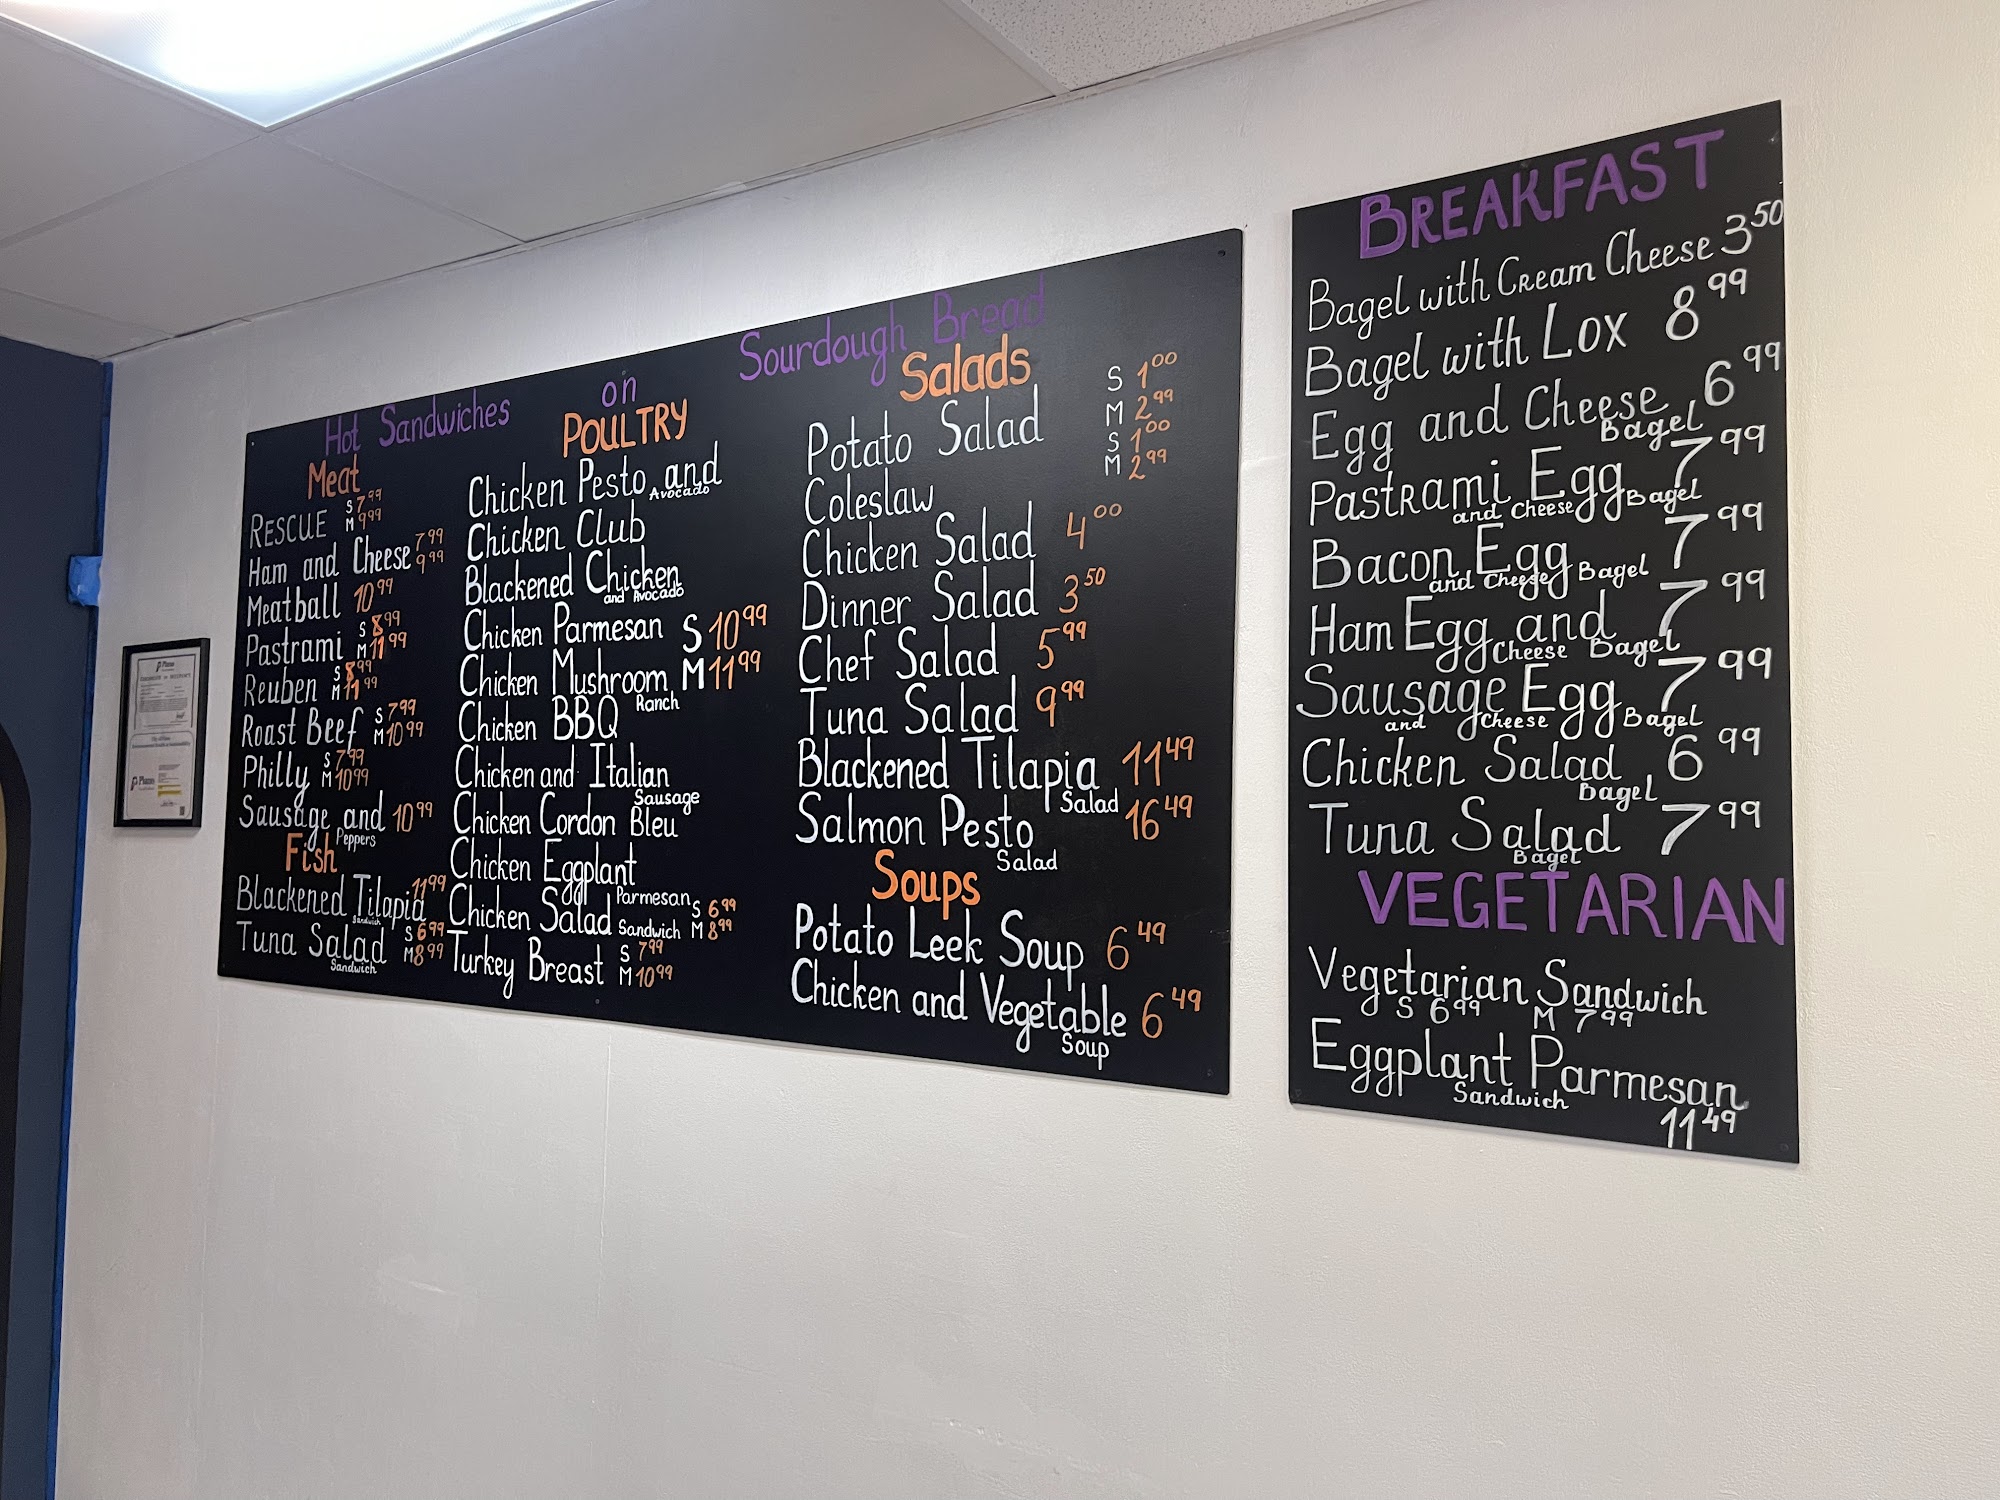 Hot Sandwiches on Sourdough Bread
Meat
RESCUE S 7.99 M 9.99
Ham and Cheese 7.99 9.99
Meatball 10.99
Pastrami S 8.99 M 11.99
Reuben S 8.99 M 11.99
Roast Beef S 7.99 M 10.99
Philly S 7.99 M 10.99
Sausage and Peppers 10.99
Fish
Blackened Tilapia Sandwich 11.99
Tuna Salad Sandwich S 6.99 M 8.99
POULTRY
Chicken Pesto and Avocado
Chicken Club
Blackened Chicken and Avocado
Chicken Parmesan S 10.99
Chicken Mushroom M 11.99
Ranch
Chicken BBQ
Chicken and Italian Sausage
Chicken Cordon Bleu
Chicken Eggplant Parmesan
Chicken Salad Sandwich S 6.99 M 8.99
Turkey Breast S 7.99 M 10.99
Salads
Potato Salad S 1.00 M 2.99
Coleslaw S 1.00 M 2.99
Chicken Salad 4.00
Dinner Salad 3.50
Chef Salad 5.99
Tuna Salad 9.99
Blackened Tilapia Salad 11.49
Salmon Pesto Salad 16.49
Soups
Potato Leek Soup 6.49
Chicken and Vegetable Soup 6.49
BREAKFAST
Bagel with Cream Cheese 3.50
Bagel with Lox 8.99
Egg and Cheese Bagel 6.99
Pastrami Egg and Cheese Bagel 7.99
Bacon Egg and Cheese Bagel 7.99
Ham Egg and Cheese Bagel 7.99
Sausage Egg and Cheese Bagel 7.99
Chicken Salad Bagel 6.99
Tuna Salad Bagel 7.99
VEGETARIAN
Vegetarian Sandwich
S 6.99 M 7.99
Eggplant Parmesan
Sandwich
11.49